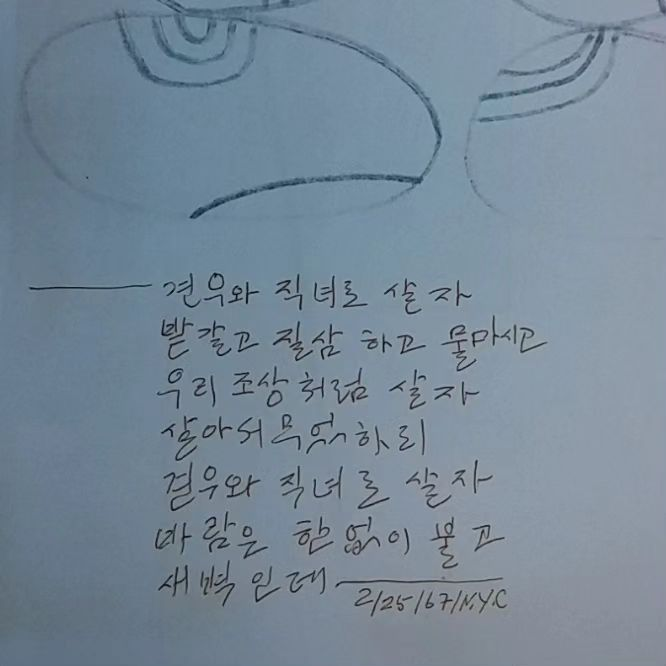 견우와 직녀로 살자
밭갈고 질삼 하고 물마시고
우리 조상처럼 살자
살아서 무엇하리
견우와 직녀로 살자
바람은 한없이 불고
새벽인데
2/25/67/N.Y.C